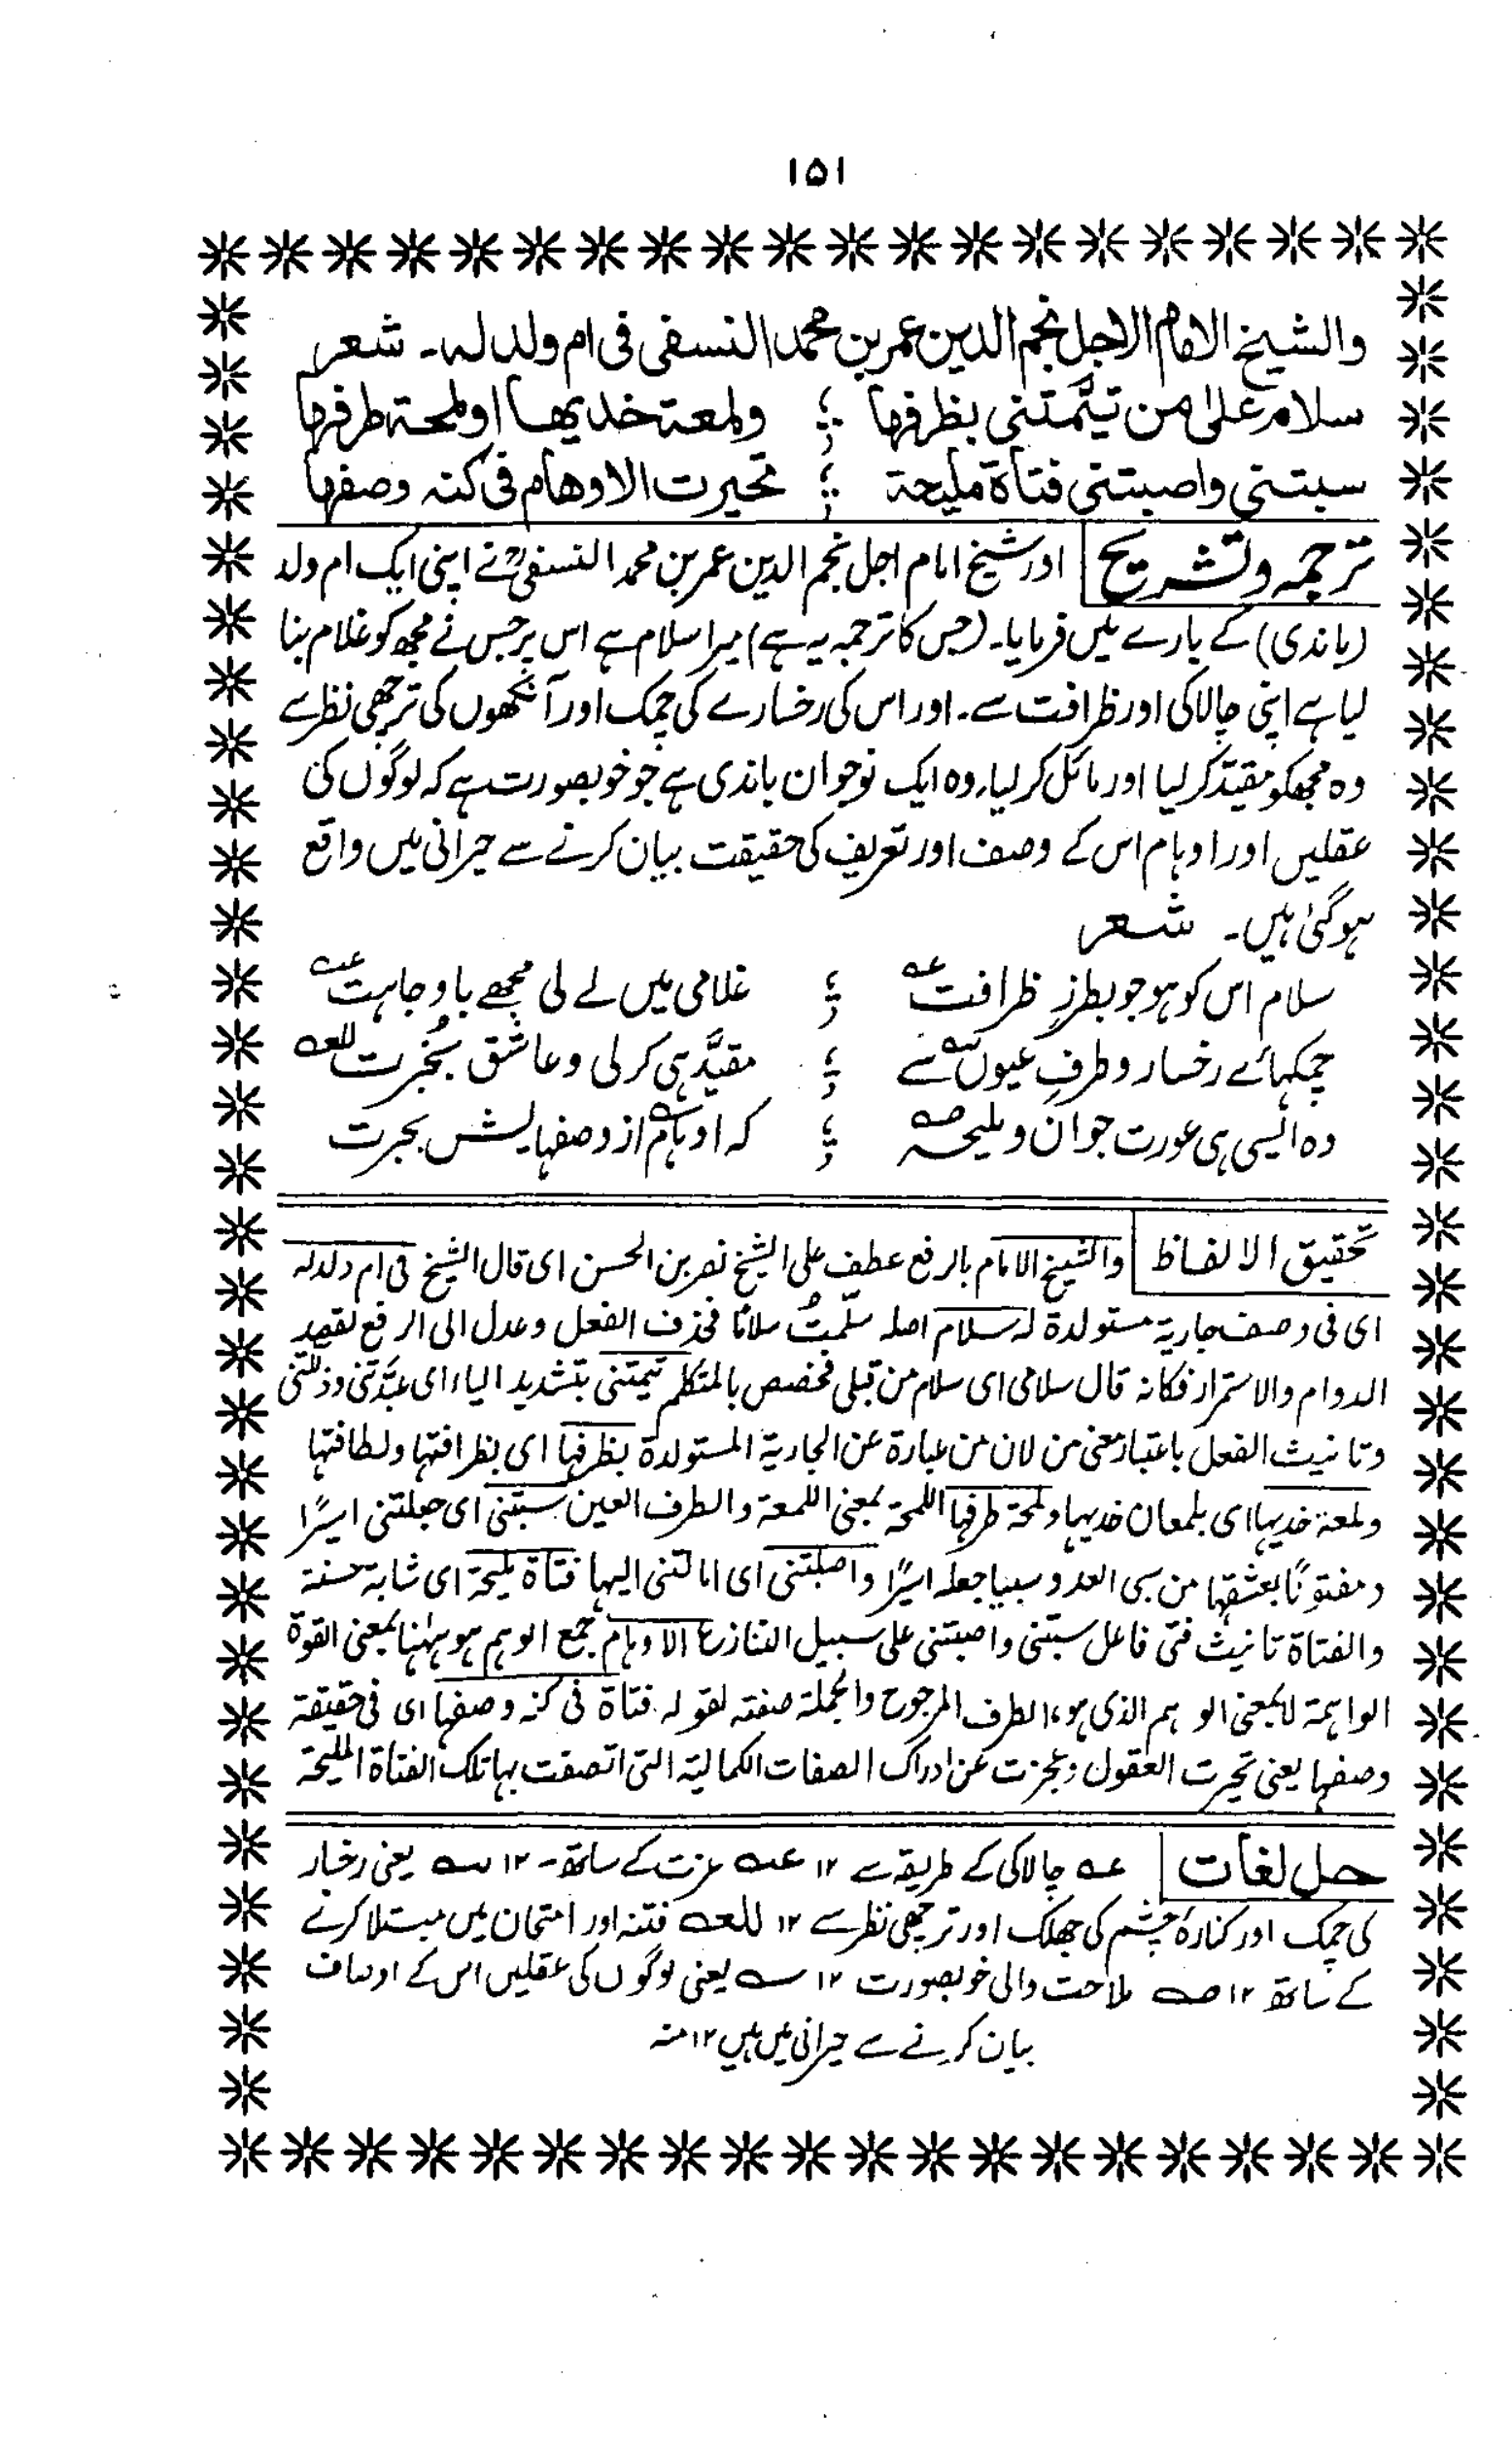 ۱۵۱
والشیخ الامام الاجل نجم الدین عمر بن محمد النسفی فی ام ولد لہ۔ شعر
سلام علی من تیّمتنی بظرفہا ؛ ولمعۃ خدیھا او لمحۃ طرفہا
سبتنی واصبتنی فتاۃ ملیحۃ ؛ تحیرت الاوھام فی کنہ وصفہا
ترجمہ وتشریح اور شیخ امام اجل نجم الدین عمر بن محمد النسفیؒ نے اپنی ایک ام ولد
(باندی) کے بارے میں فرمایا۔ (جس کا ترجمہ یہ ہے) میرا سلام ہے اس پر جس نے مجھ کو غلام بنا
لیا ہے اپنی چالاکی اور ظرافت سے۔ اور اس کی رخسارے کی چمک اور آنکھوں کی ترچھی نظرے
وہ مجھکو مقیّد کر لیا اور مائل کر لیا، وہ ایک نوجوان باندی ہے جو خوبصورت ہے کہ لوگوں کی
عقلیں اور اوہام اس کے وصف اور تعریف کی حقیقت بیان کرنے سے حیرانی میں واقع
ہوگئی ہیں۔ شعر
سلام اس کو ہو جو بطرزِ ظرافت عہ ؛ غلامی میں لے لی مجھے با وجاہت عہ
چمکہائے رخسار و طرفِ عیوں سے ؛ مقیَّد ہی کر لی و عاشق بخُبرت للعہ
وہ ایسی ہی عورت جوان و ملیحہ صہ ؛ کہ اوہام از وصفہایش بحیرت
تحقیق الالفاظ والشیخ الامام بالرفع عطف علی الشیخ نصر بن الحسن ای قال الشیخ فی ام ولد لہ
ای فی وصف جاریۃ مستولدۃ لہ سلام اصلہ سلّمتُ سلامًا فحذف الفعل وعدل الی الرفع لقصد
الدوام والاستمرار فکانہ قال سلامی ای سلام من قبلی فخصص بالمتکلم تیمتنی بتشدید الیاء ای عبّدتنی وذللتنی
وتانیث الفعل باعتبار معنی من لان من عبارۃ عن الجاریۃ المستولدۃ بظرفہا ای بظرافتہا ولطافتہا
ولمعۃ خدیہا ای بلمعان خدیہا ولمحۃ طرفہا اللمحۃ بمعنی اللمعۃ والطرف العین سبتنی ای جعلتنی اسیرًا
ومفتونًا بعشقہا من سبی العدو سبیا جعلہ اسیرًا واصبتنی ای امالتنی الیہا فتاۃ ملیحۃ ای شابۃ حسنۃ
والفتاۃ تانیث فتی فاعل سبتنی واصبتنی علی سبیل التنازع الاوہام جمع الوہم ہو ہہنا بمعنی القوۃ
الواہمۃ لا بمعنی الوہم الذی ہو الطرف المرجوح والجملۃ صفتہ لقولہ فتاۃ فی کنہ وصفہا ای فی حقیقۃ
وصفہا یعنی تحیرت العقول وعجزت عن ادراک الصفات الکمالیۃ التی اتصفت بہا تلک الفتاۃ الملیحۃ
حل لغات عہ چالاکی کے طریقہ سے ۱۲ عہ عزت کے ساتھ۔ ۱۲ سہ یعنی رخسار
کی چمک اور کنارۂ چشم کی جھلک اور ترچھی نظر سے ۱۲ للعہ فتنہ اور امتحان میں مبتلا کرنے
کے ساتھ ۱۲ صہ ملاحت والی خوبصورت ۱۲ سہ یعنی لوگوں کی عقلیں اس کے اوصاف
بیان کرنے سے حیرانی میں ہیں ۱۲ منہ